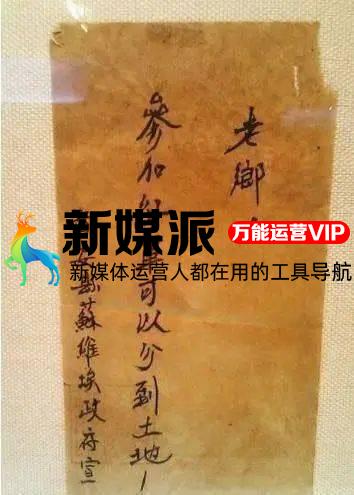 老鄉，
參加紅軍可以分到土地！
蘇維埃政府宣
新媒派
万能运营VIP
新媒体运营人都在用的工具导航